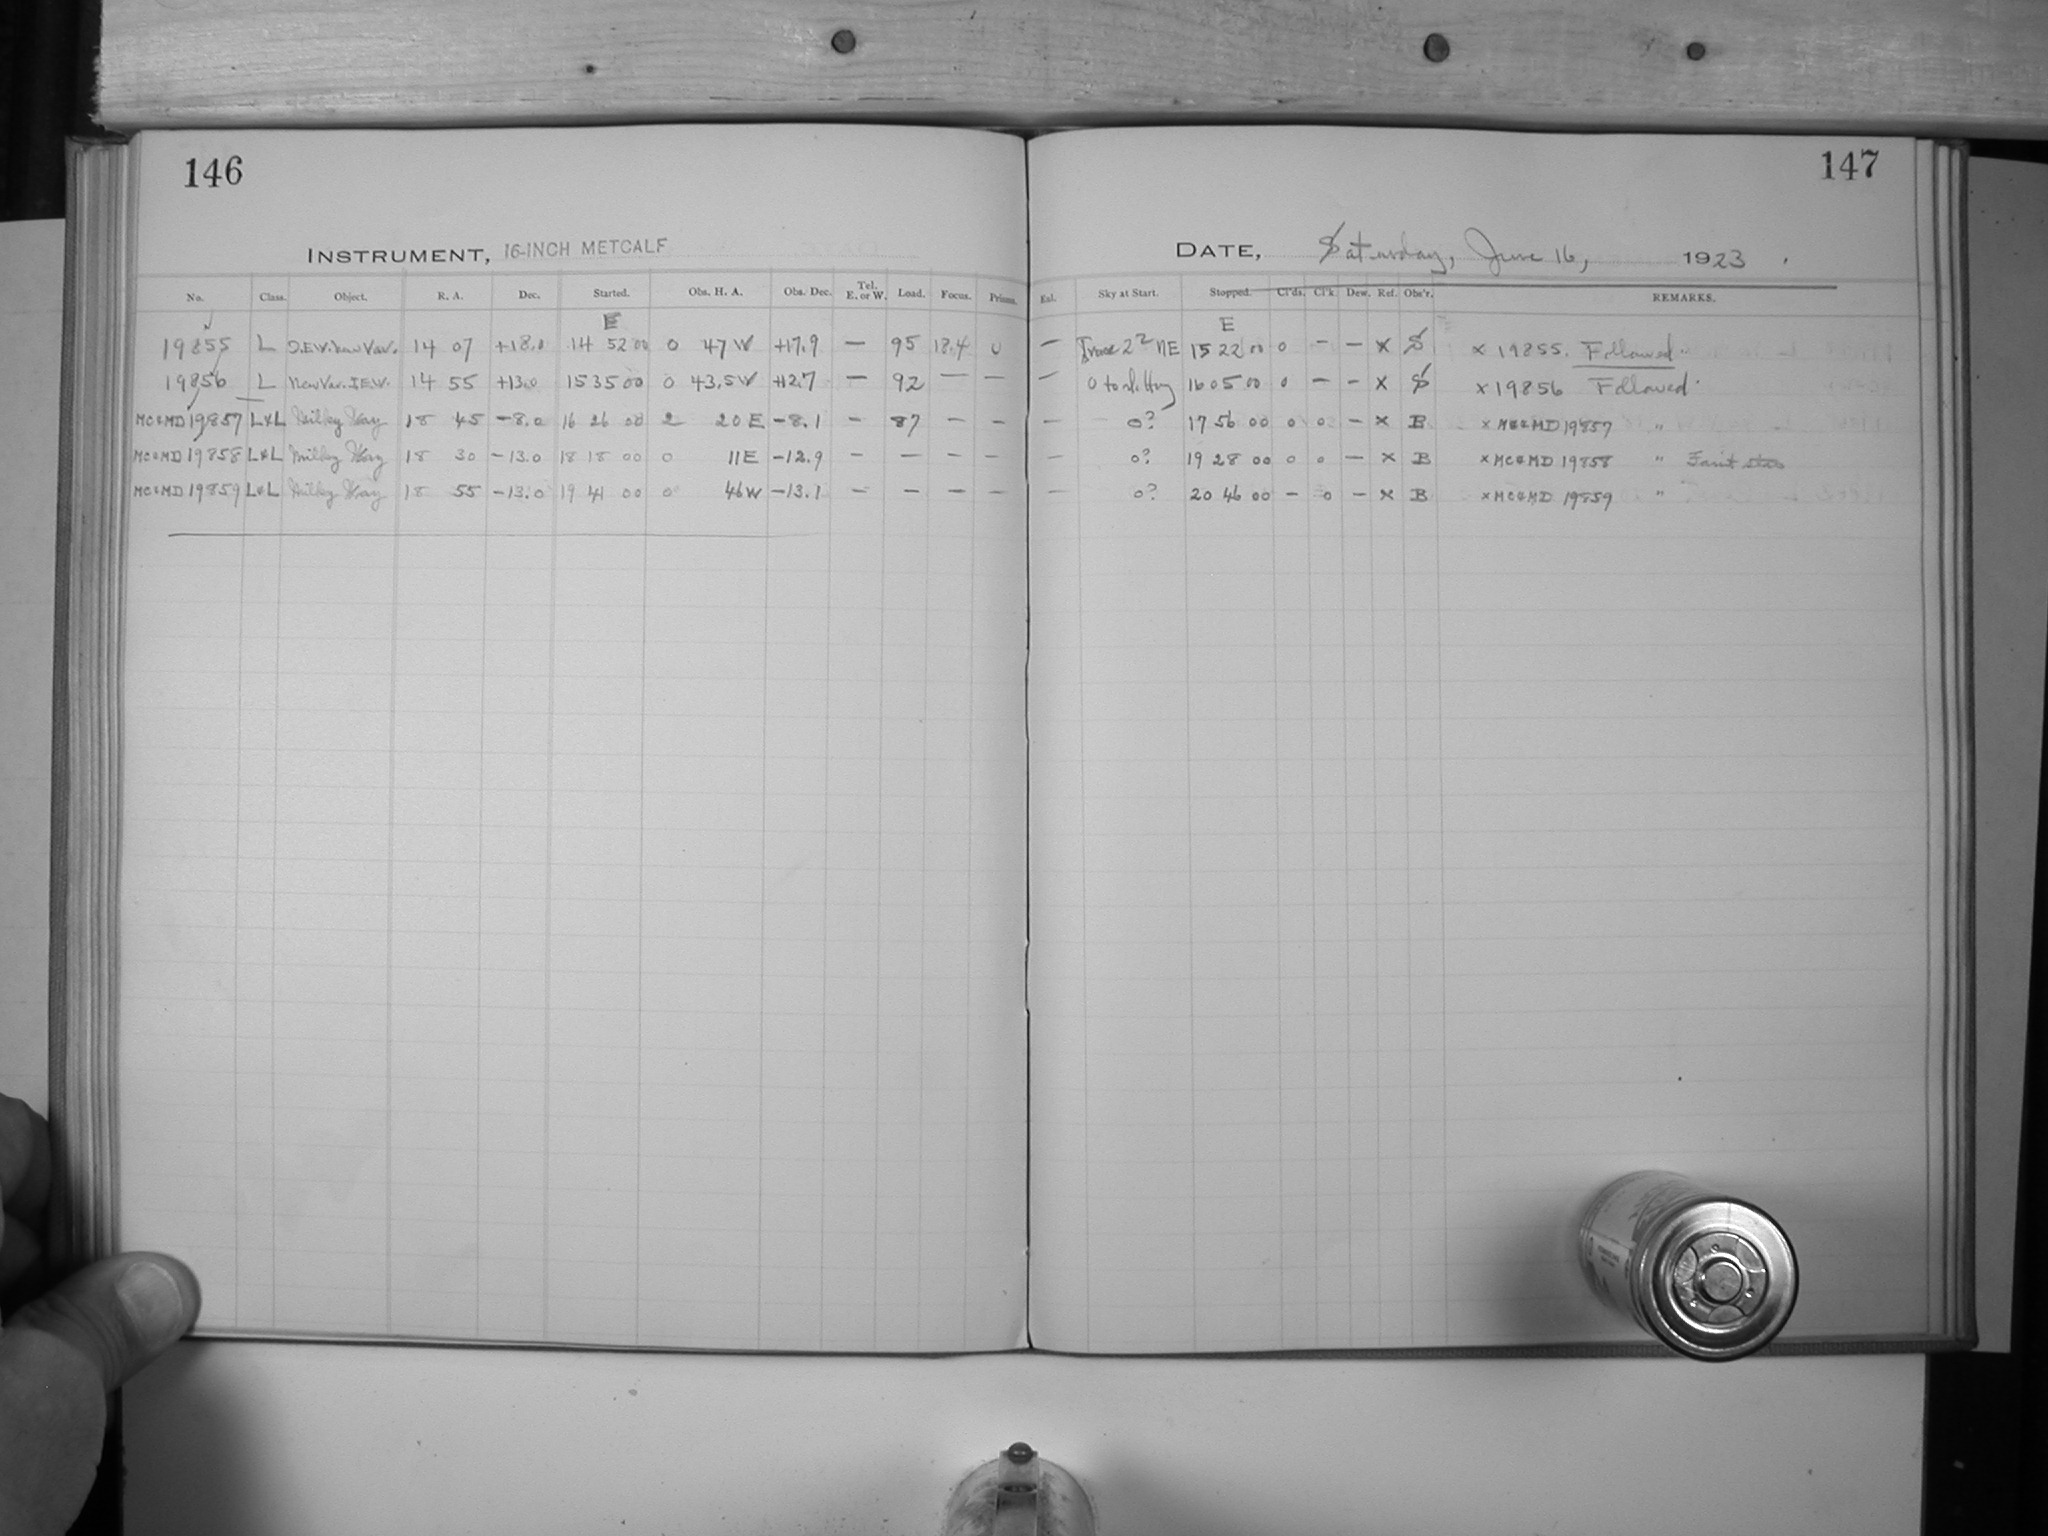 146
INSTRUMENT, 16-INCH METCALF
No. Class. Object. R. A. Dec. Started. Obs. H. A. Obs. Dec. Tel. E. or W. Load. Focus. Prisms.
E
19855 L New Var. 14 07 +18.0 14 52 00 0 47 W +17.9 — 95 18.4 0
19856 L New Var. I.E.W. 14 55 +13.0 15 35 00 0 43.5 W +12.7 — 92 — —
MC&MD 19857 L&L Milky Way 18 45 -8.0 16 26 00 2 20 E -8.1 — 87 — —
MC&MD 19858 L&L Milky Way 18 30 -13.0 18 18 00 0 11 E -12.9 — — — —
MC&MD 19859 L&L Milky Way 18 55 -13.0 19 41 00 0 46 W -13.1 — — — —
147
DATE, Saturday, June 16, 1923.
Sky at Start. Stopped. Cl'ds. Cl'k. Dew. Ref. Obs'r. REMARKS.
E
— NE 15 22 00 0 — — x S x 19855. Followed
— 0 to 16 05 00 0 — — x S x 19856 Followed
— 0? 17 56 00 0 0 — x B x MC&MD 19857 "
— 0? 19 28 00 0 0 — x B x MC&MD 19858 "
— 0? 20 46 00 — 0 — x B x MC&MD 19859 "